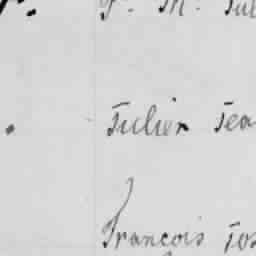 Julien Jea
Francois Jos